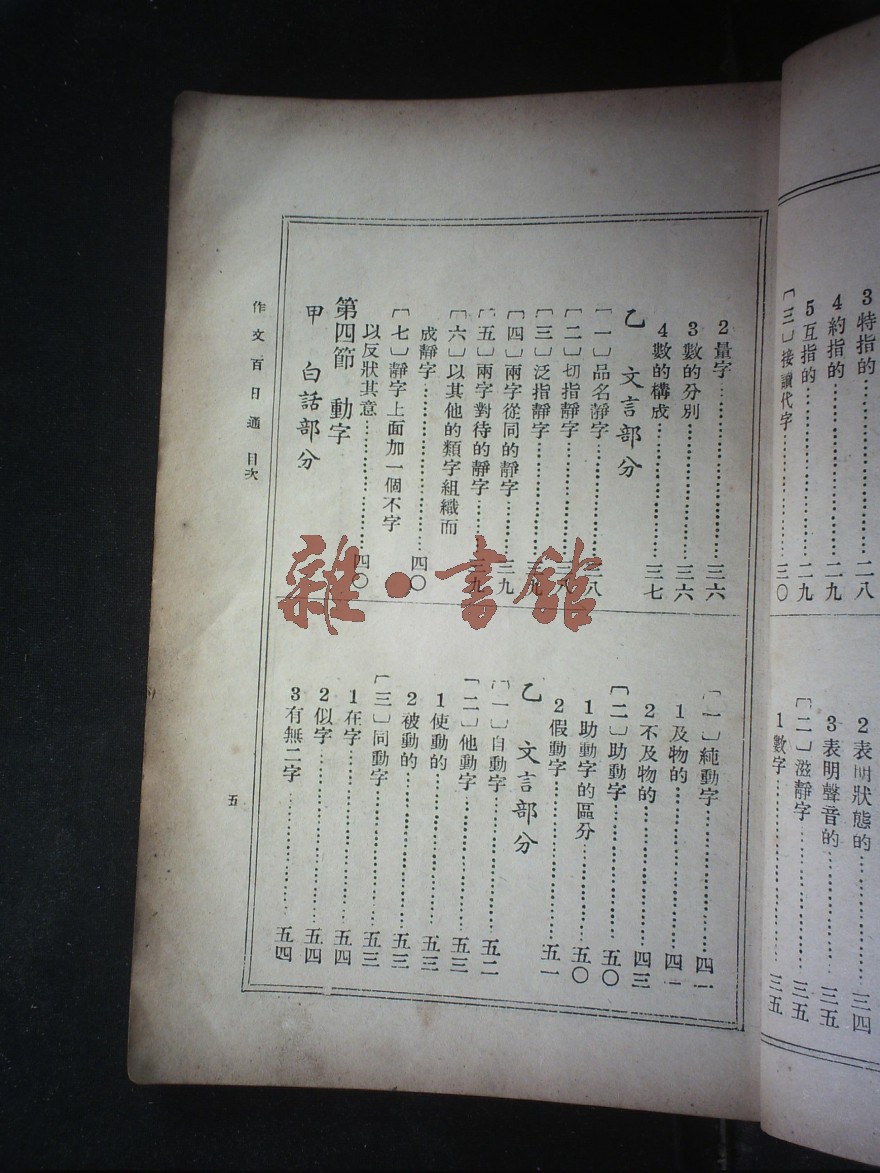 3特指的……二八
4約指的……二九
5互指的……二九
〔三〕接讀代字……三〇
2表明狀態的……三四
3表明聲音的……三五
〔二〕滋靜字……三五
1數字……三五
2量字……三六
3數的分別……三六
4數的構成……三七
乙 文言部分
〔一〕品名靜字……三八
〔二〕切指靜字……三八
〔三〕泛指靜字……三九
〔四〕兩字從同的靜字……三九
〔五〕兩字對待的靜字……三九
〔六〕以其他的類字組織而
成靜字……四〇
〔七〕靜字上面加一個不字
以反狀其意……四〇
第四節 動字
甲 白話部分
〔一〕純動字……四一
1及物的……四一
2不及物的……四三
〔二〕助動字……五〇
1助動字的區分……五〇
2假動字……五一
乙 文言部分
〔一〕自動字……五二
〔二〕他動字……五三
1使動的……五三
2被動的……五三
〔三〕同動字……五三
1在字……五四
2似字……五四
3有無二字……五四
作文百日通 目次
五
雜·書館